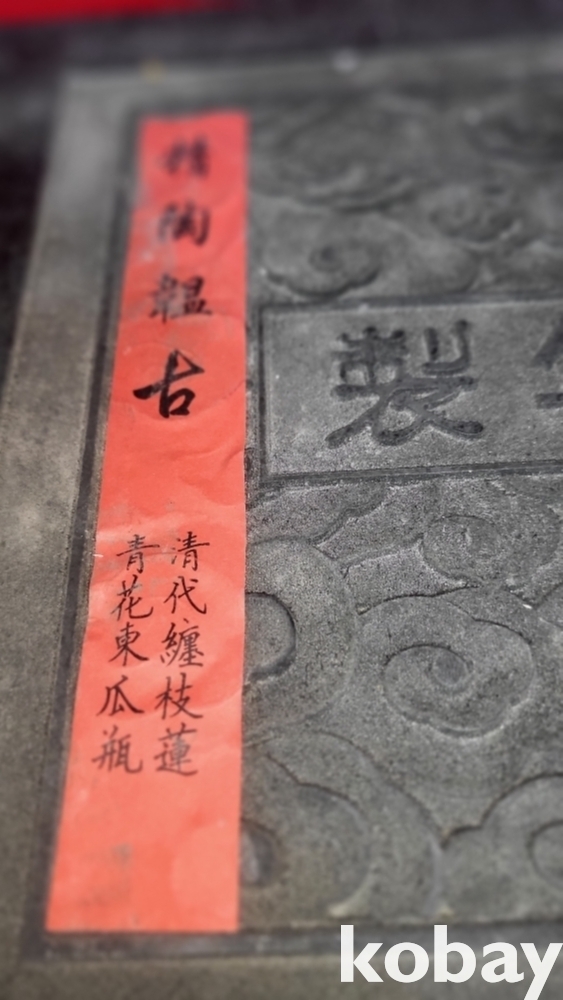 精陶韞古
清代纏枝蓮
青花東瓜瓶
製
kobay